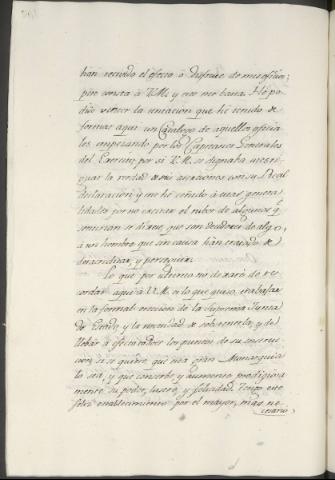 han recivido el efecto ó disfrute de mis oficios;
pero consta á V.M. y eso me basta. He po-
dido vencer la tentacion que hé tenido de
formar aqui un Catalogo de aquellos oficia-
les empezando por los Capitanes Generales
del Exercito, por si V.M. se dignaba averi-
guar la verdad de mis aserciones con su Real
declaracion; y me hé ceñido á unas genera-
lidades por no excitar el rubor de algunos q.e
sentirian se dixese, que son deudores de algo,
á un hombre que sin causa han tratado de
desacreditar, y perseguir.
Lo que por ultimo no dexaré de re-
cordar aqui á V.M. es lo que quiso trabajase
en la formal ereccion de la Suprema Junta
de Estado, y la necesidad de sostenerla, y de
llebar á efecto todos los puntos de su instruc-
cion, si se quiere que esta gran Monarquia
lo sea, y que conserbe, y aumente prodigiosa-
mente su poder, lustre, y felicidad. Tengo este
feliz establecimiento por el mayor, mas ne-
cesario